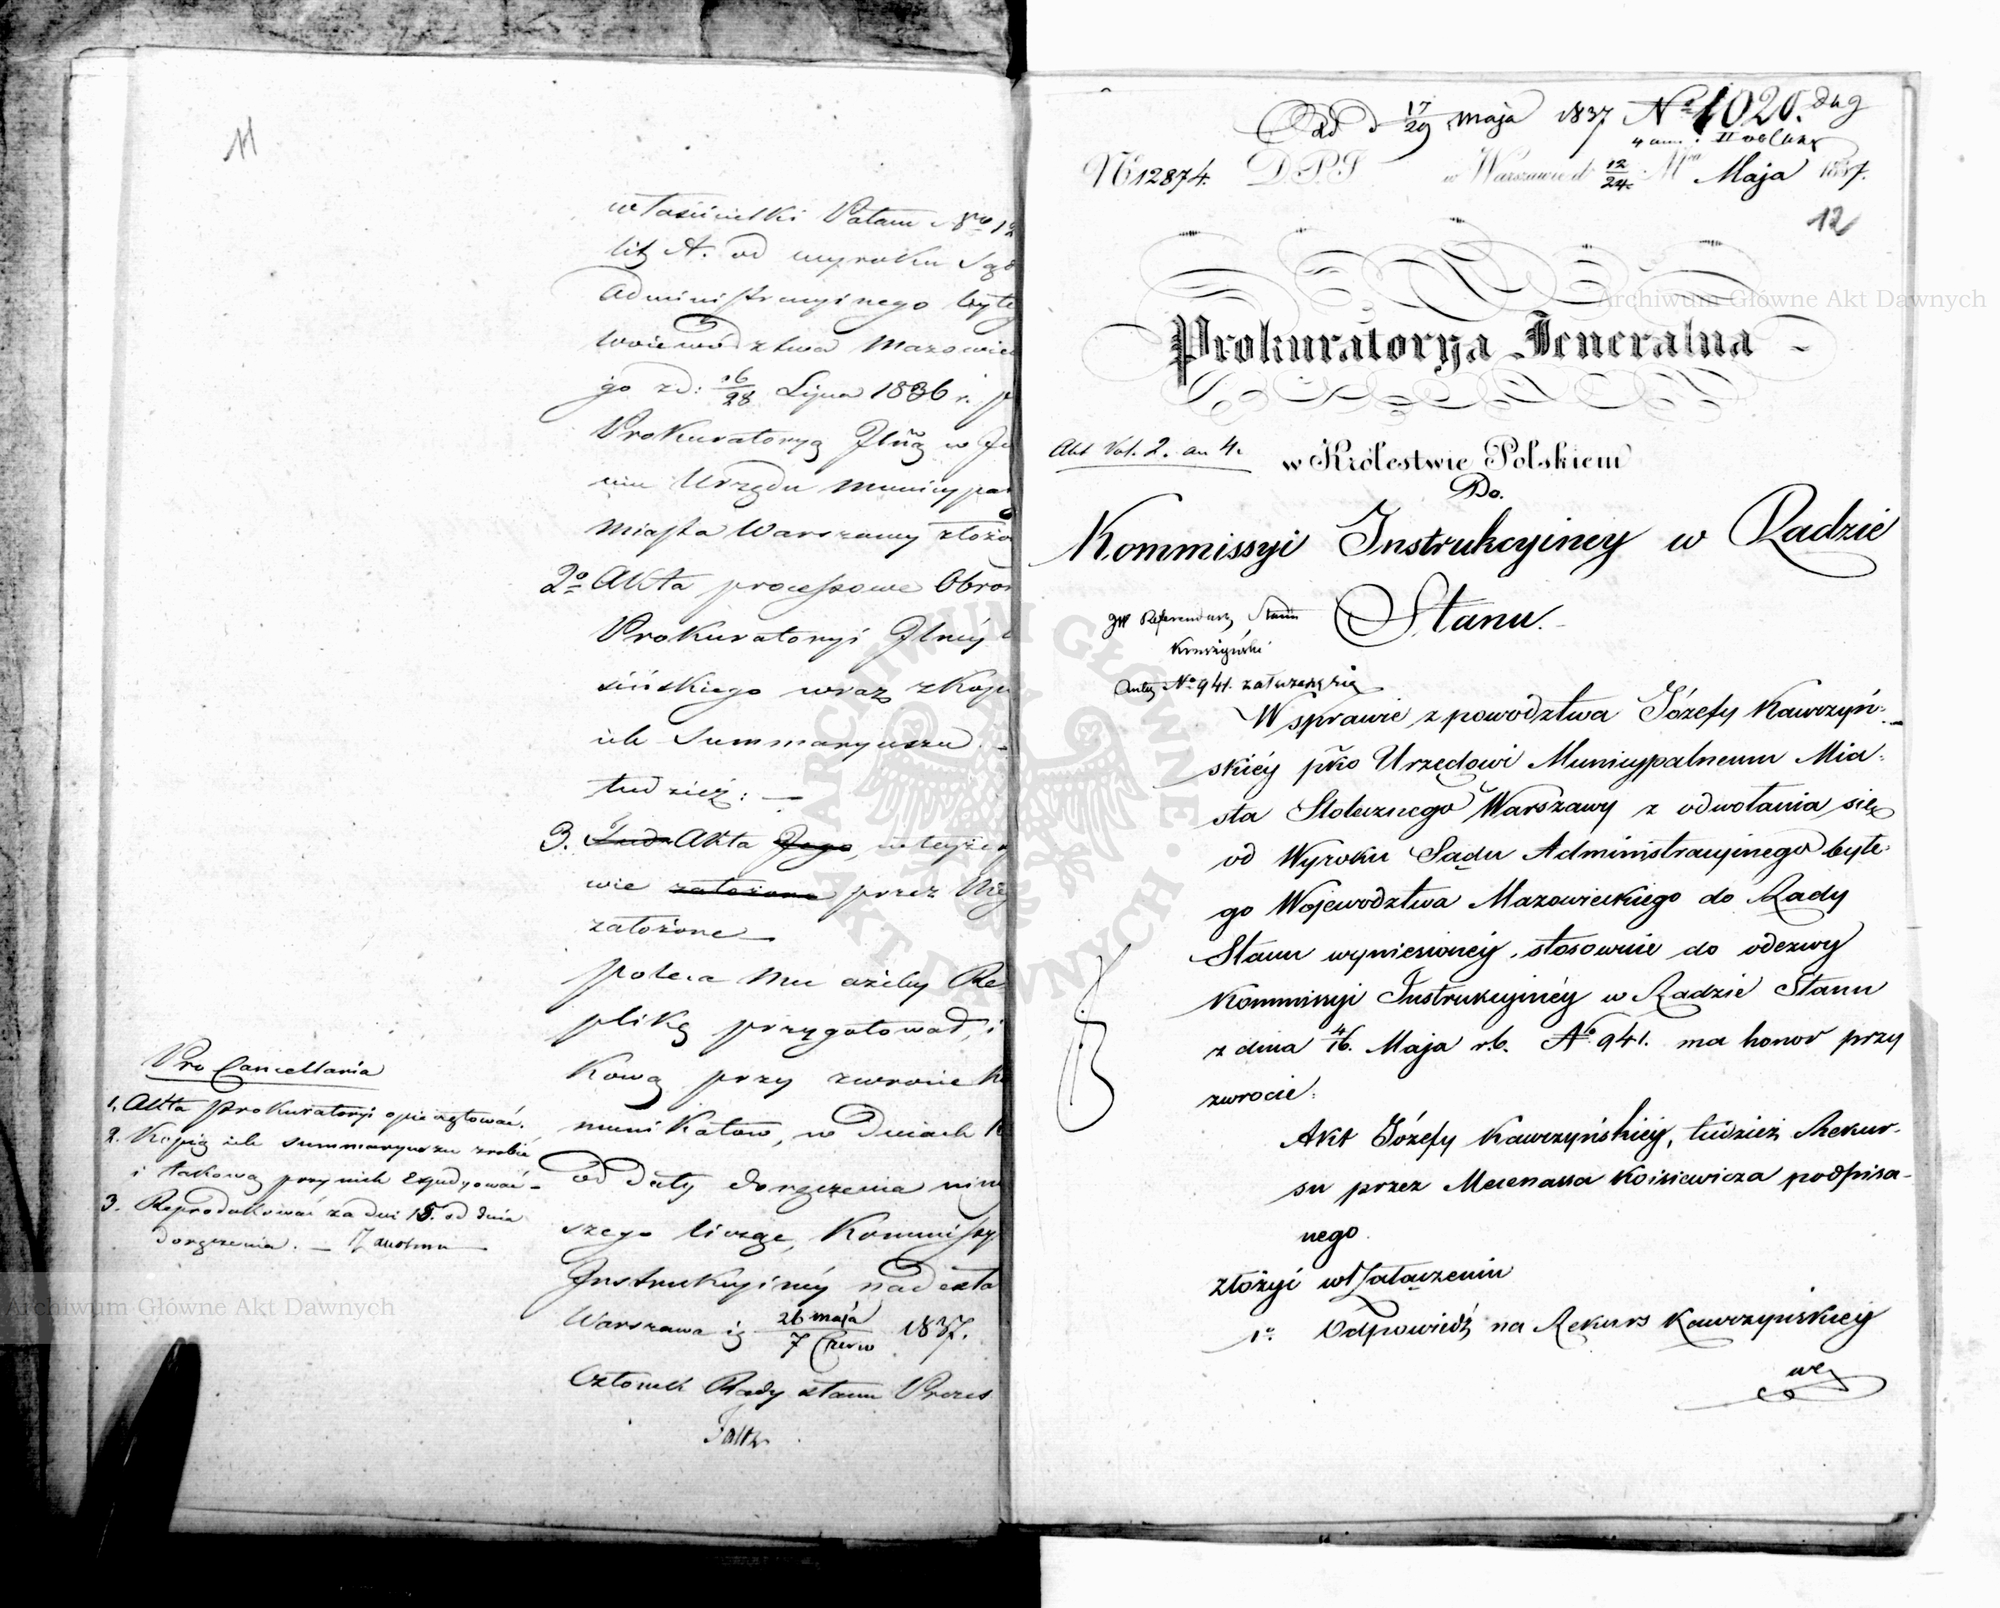 11
właścicielki Pałacu Nro 12
lit A. od wyroku Sąd
Administracyinego byłeg
Woiewództwa Mazowiec
go z d: 16/28 Lipca 1836 r. p
Prokuratoryą Jlną w Jm
niu Urzędu Municypal
Miasta Warszawy złożo
2o Akta processowe Obroń
Prokuratoryi Jlnéy
sińskiego wraz z kopi
ich Summaryusza. –
tudzież: –
3. Akta, w teyże
wie przez
założone –
poleca mu ażeby Re
plikę przygotował, i
kową przy zwrocie ko
munikatów, w dniach
od daty doręczenia nin
szego licząc, Kommissy
Instrukcyinéy nadesła
Warszawa d. 26 maja/7 Czerw 1837.
Członek Rady Stanu Prezes
Pro Cancellaria
1. Akta prokuratoryi opieczętować.
2. Kopią ich summaryusza zrobić
i takową przy nich Expedyować –
3. Reprodukować za dni 15. od dnia
doręczenia. –
Od d 17/29 maja 1837 No 1020.
No 12874. D.P.S w Warszawie d 12/24 Mca Maja 1837.
12
Prokuratorya Jeneralna
Akt Vol. 2. an 4. w Królestwie Polskiem
Do.
Kommissyi Instrukcyiney w Radzie
Stanu.
JW Referendarz Stanu
No 941. załącza się
W sprawie z powództwa Józefy Kawczyń-
skiéy pko Urzędowi Municypalnemu Mia-
sta Stołecznego Warszawy z odwołania się
od Wyroku Sądu Administracyinego byłe-
go Województwa Mazowieckiego do Rady
Stanu wyniesionéy, stosownie do odezwy
Kommissyi Instrukcyinéy w Radzie Stanu
z dnia 4/16. Maja r.b. No 941. ma honor przy
zwrocie:
Akt Józefy Kawczyńskiéy, tudzież Rekur-
su przez Mecenasa Koisiewicza podpisa-
nego
złożyć w załączeniu
1o. Odpowiedź na Rekurs Kawczyńskiey
we
Archiwum Główne Akt Dawnych
Archiwum Główne Akt Dawnych
ARCHIWUM GŁÓWNE AKT DAWNYCH